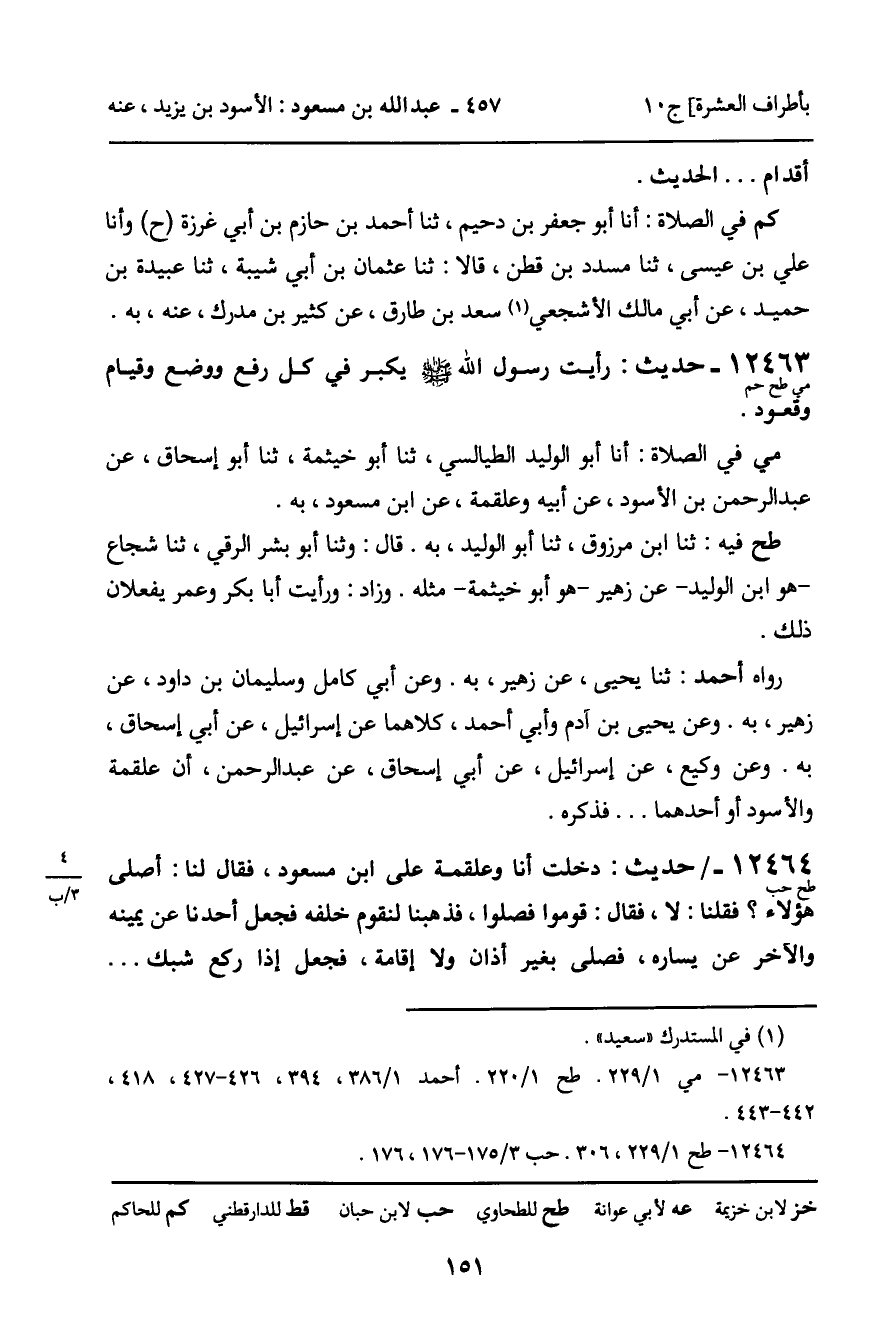 بأطراف العشرة] ج١٠ ٤٥٧ ـ عبدالله بن مسعود : الأسود بن يزيد ، عنه
أقدام . . . الحديث .
كم في الصلاة : أنا أبو جعفر بن دحيم ، ثنا أحمد بن حازم بن أبي غرزة (ح) وأنا
علي بن عيسى ، ثنا مسدد بن قطن ، قالا : ثنا عثمان بن أبي شيبة ، ثنا عبيدة بن
حميد ، عن أبي مالك الأشجعي(١) سعد بن طارق ، عن كثير بن مدرك ، عنه ، به .
١٢٤٦٣ ـ حديث : رأيت رسول الله ﷺ يكبر في كل رفع ووضع وقيام
مي طح حم
وقعود .
مي في الصلاة : أنا أبو الوليد الطيالسي ، ثنا أبو خيثمة ، ثنا أبو إسحاق ، عن
عبدالرحمن بن الأسود ، عن أبيه وعلقمة ، عن ابن مسعود ، به .
طح فيه : ثنا ابن مرزوق ، ثنا أبو الوليد ، به . قال : وثنا أبو بشر الرقي ، ثنا شجاع
-هو ابن الوليد- عن زهير -هو أبو خيثمة- مثله . وزاد : ورأيت أبا بكر وعمر يفعلان
ذلك .
رواه أحمد : ثنا يحيى ، عن زهير ، به . وعن أبي كامل وسليمان بن داود ، عن
زهير ، به . وعن يحيى بن آدم وأبي أحمد ، كلاهما عن إسرائيل ، عن أبي إسحاق ،
به . وعن وكيع ، عن إسرائيل ، عن أبي إسحاق ، عن عبدالرحمن ، أن علقمة
والأسود أو أحدهما . . . فذكره .
١٢٤٦٤ ـ/ حديث : دخلت أنا وعلقمة على ابن مسعود ، فقال لنا : أصلى
٤
٣/ب
طح حب
هؤلاء ؟ فقلنا : لا ، فقال : قوموا فصلوا ، فذهبنا لنقوم خلفه فجعل أحدنا عن يمينه
والآخر عن يساره ، فصلى بغير أذان ولا إقامة ، فجعل إذا ركع شبك . . .
(١) في المستدرك «سعيد» .
١٢٤٦٣- مي ٢٢٩/١ . طح ٢٢٠/١ . أحمد ٣٨٦/١ ، ٣٩٤ ، ٤٢٦-٤٢٧ ، ٤١٨ ،
٤٤٢-٤٤٣ .
١٢٤٦٤- طح ٢٢٩/١ ، ٣٠٦ . حب ١٧٥/٣-١٧٦ ، ١٧٦ .
خز لابن خزيمة عه لأبي عوانة طح للطحاوي حب لابن حبان قط للدارقطني كم للحاكم
١٥١